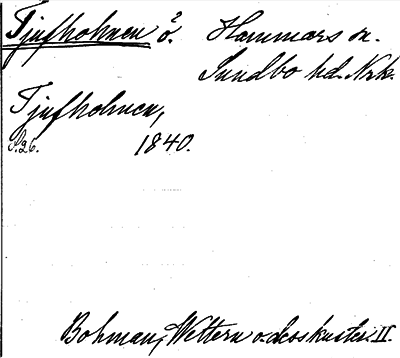 Tjufholmen ö. Hammars sn.
Sundbo hd. Nrk.
Tjufholmen,
S.26. 1840.
Bohman, Wettern o. dess kuster. II.